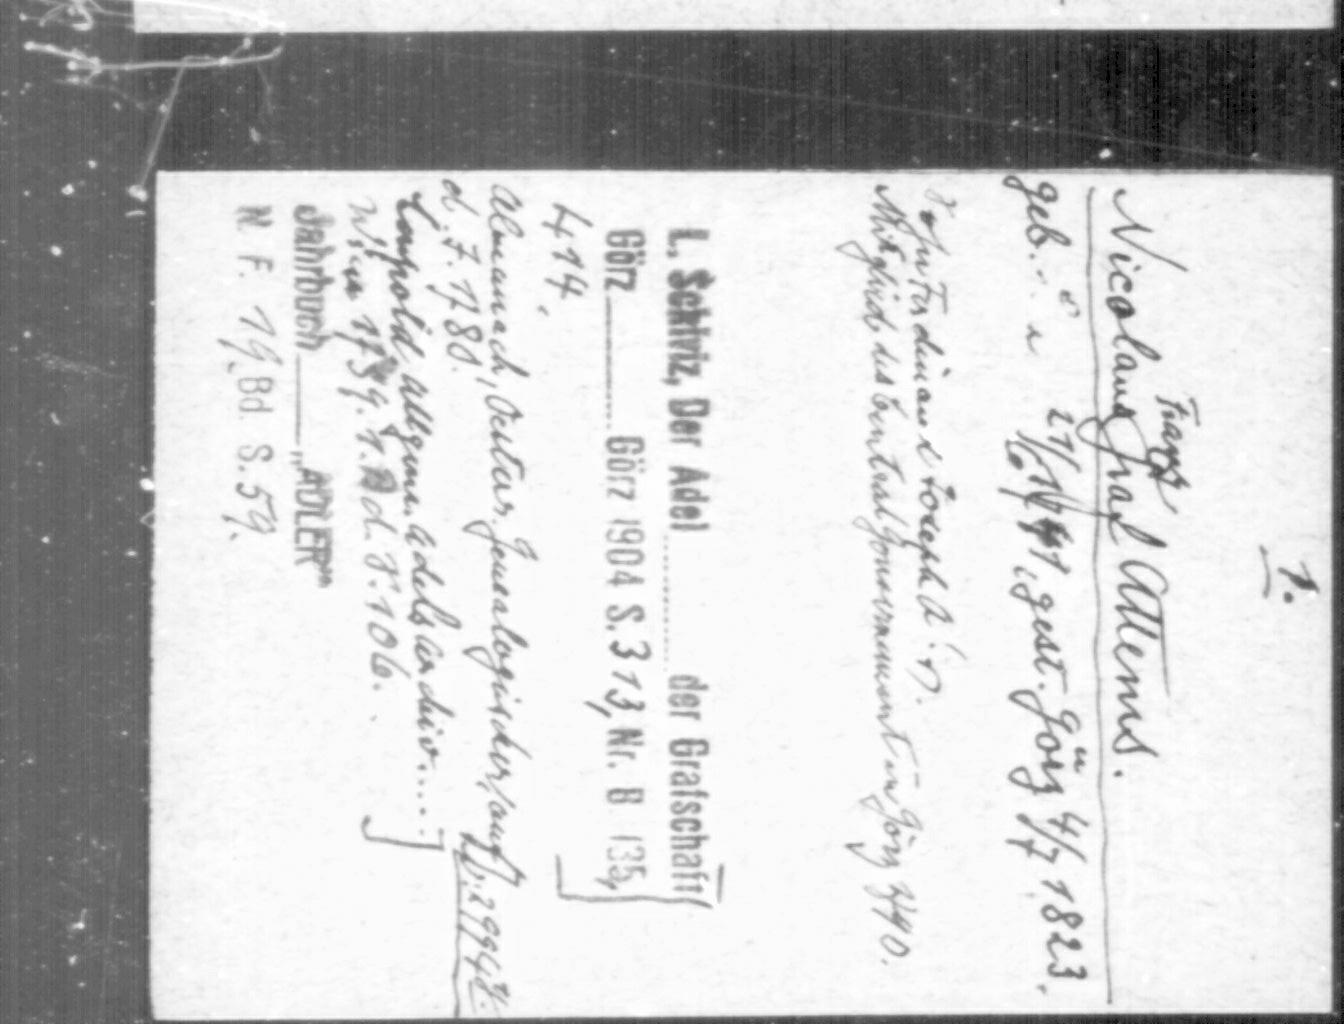 1.
Franz
Nicolaus Graf Attems.
geb. 21/1741, gest. in Görz 4/7 1823.
Ferdinand Joseph d.
Mitglied des Central Gouvernement in Görz
L. Schiviz, Der Adel ........... der Grafschaft
Görz ........... Görz 1904 S. 313, Nr. B 135,
414.
Almanach, Oesterr. Genealogischer,
d. J. 780.
Leupold, allgem. Adelsarchiv....
Wien S. 106.
Jahrbuch „ADLER”
N. F. 19. Bd S. 59.